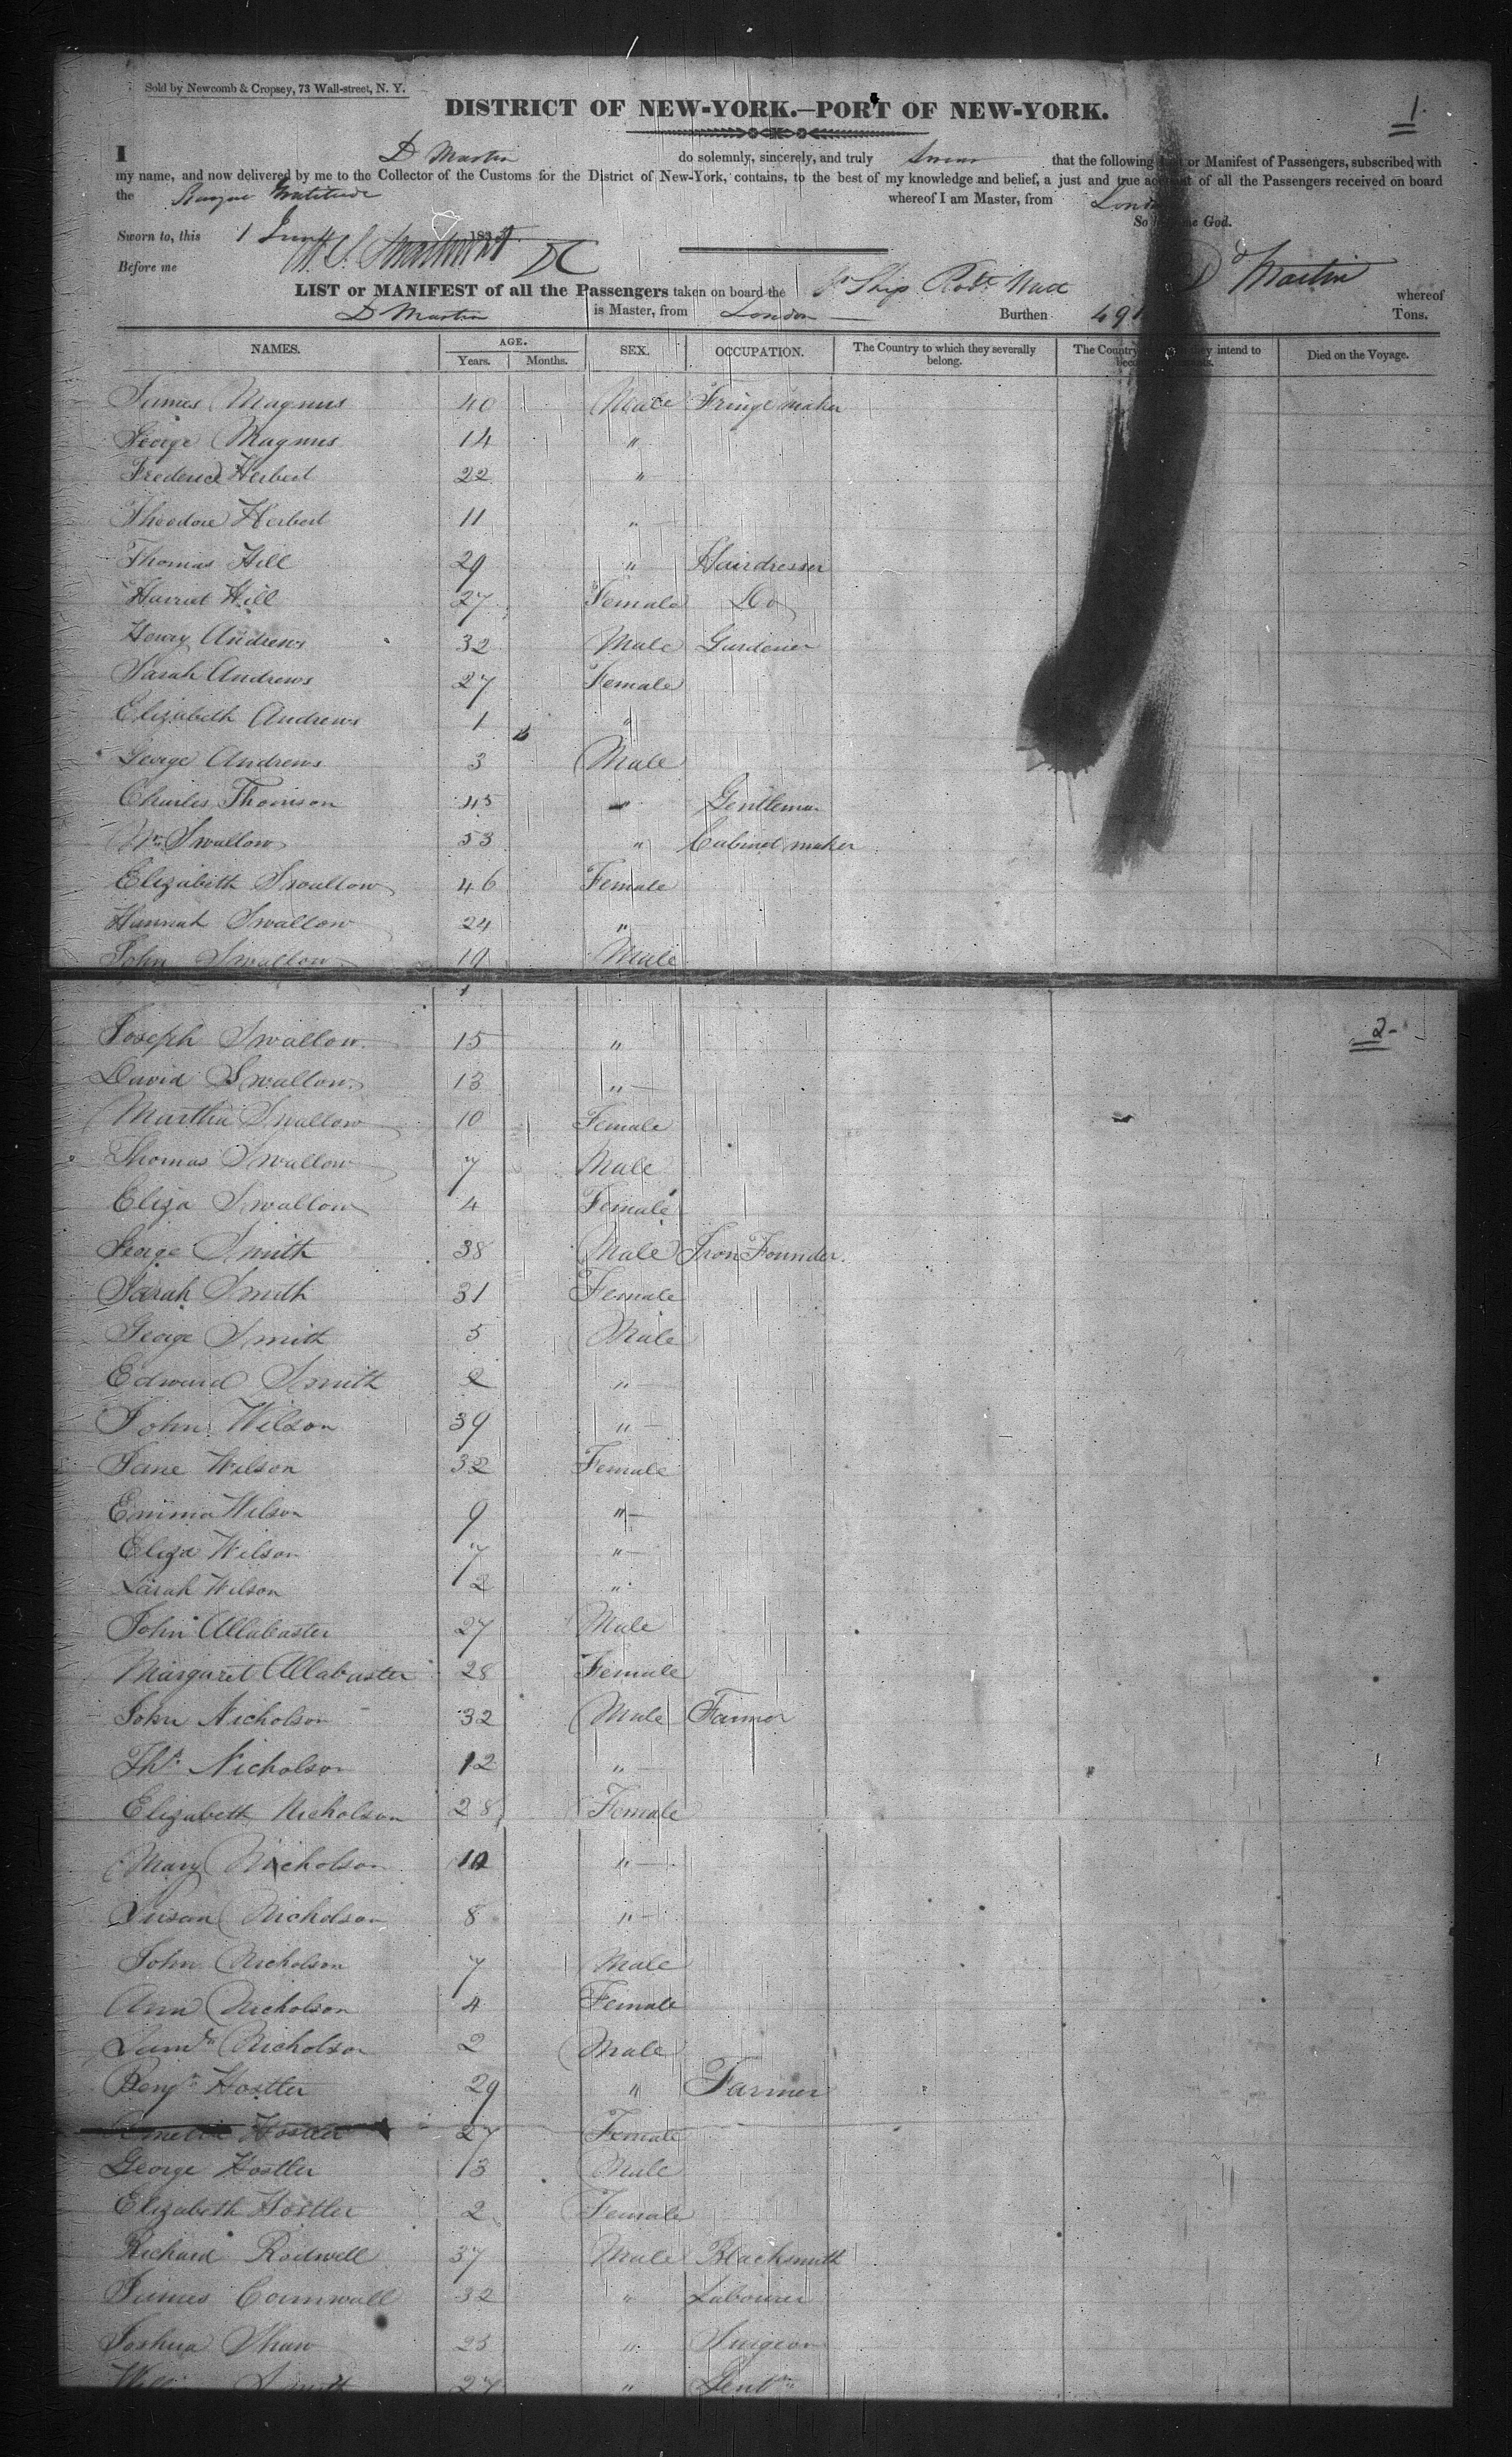 Sold by Newcomb & Cropsey, 73 Wall-street, N. Y.
1.
DISTRICT OF NEW-YORK.—PORT OF NEW-YORK.
I D Martin do solemnly, sincerely, and truly that the following or Manifest of Passengers, subscribed with
my name, and now delivered by me to the Collector of the Customs for the District of New-York, contains, to the best of my knowledge and belief, a just and true of all the Passengers received on board
the Gratitude whereof I am Master, from
So God.
Sworn to, this 1 183
Before me
D Martin
LIST or MANIFEST of all the Passengers taken on board the Ship whereof
D Martin is Master, from London Burthen Tons.
NAMES. AGE. Years. Months. SEX. OCCUPATION. The Country to which they severally belong. The Country intend to Died on the Voyage.
James Magnus 40 Male Fringe maker
George Magnus 14 "
Frederick Herbert 22 "
Theodore Herbert 11 "
Thomas Hill 29 " Hairdresser
Harriet Hill 27 Female Do
Henry Andrews 32 Male Gardener
Sarah Andrews 27 Female
Elizabeth Andrews 1 "
George Andrews 3 Male
Charles Thomson 45 " Gentleman
Wm Swallow 53 " Cabinet maker
Elizabeth Swallow 46 Female
Hannah Swallow 24 "
John Swallow 19 Male
2-
Joseph Swallow 15 "
David Swallow 13 "
Martha Swallow 10 Female
Thomas Swallow 7 Male
Eliza Swallow 4 Female
George Smith 38 Male Iron Founder.
Sarah Smith 31 Female
George Smith 5 Male
Edward Smith 2 "
John Wilson 39 "
Jane Wilson 32 Female
Emma Wilson 9 "
Eliza Wilson 7 "
Sarah Wilson 2 "
John Allabaster 27 Male
Margaret Allabaster 28 Female
John Nicholson 32 Male Farmer
Ths Nicholson 12 "
Elizabeth Nicholson 28 Female
Mary Nicholson 10 "
Susan Nicholson 8 "
John Nicholson 7 Male
Ann Nicholson 4 Female
Nicholson 2 Male
Benjn Hostler 29 " Farmer
Amelia Hostler 27 Female
George Hostler 3 Male
Elizabeth Hostler 2 Female
Richard Rodwell 37 Male Blacksmith
James Cornwall 32 " Labourer
Joshua Shaw 25 " Surgeon
Smith 27 " Gentn